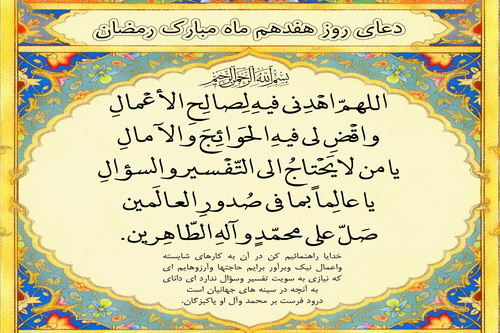 دعای روز هفدهم ماه مبارک رمضان
بسم الله الرحمن الرحیم
اللهمّ اهْدِنی فیهِ لِصالِحِ الأعْمالِ
واقْضِ لی فیهِ الحَوائِجَ والآمالِ
یا من لا یَحْتاجُ الی التّفْسیرِ والسؤالِ
یا عالِماً بما فی صُدورِ العالَمین
صَلّ علی محمّدٍ وآلهِ الطّاهِرین.
خدایا راهنمائیم کن در آن به کارهای شایسته
واعمال نیک وبرآور برایم حاجتها وآرزوهایم ای
که نیازی به سویت تفسیر وسؤال ندارد ای دانای
به آنچه در سینه های جهانیان است
درود فرست بر محمد وآل او پاکیزگان.